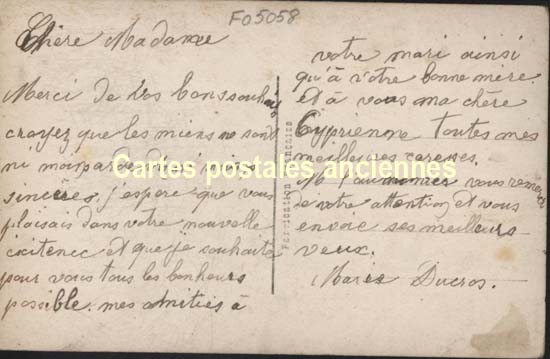 F05058
Chère Madame
Merci de vos bons souhaits
croyez que les miens ne sont
ni moins
sincères. j'espère que vous
plaisais dans votre nouvelle
et que je souhaite
pour vous tous les bonheurs
possible. mes amitiés à
Fabrication Française
votre mari ainsi
qu'à votre bonne mère
et à vous ma chère
Cyprienne toutes mes
meilleures caresses.
vous remercie
de votre attention et vous
envoie ses meilleurs
veux.
Marie Ducros.
Cartes postales anciennes